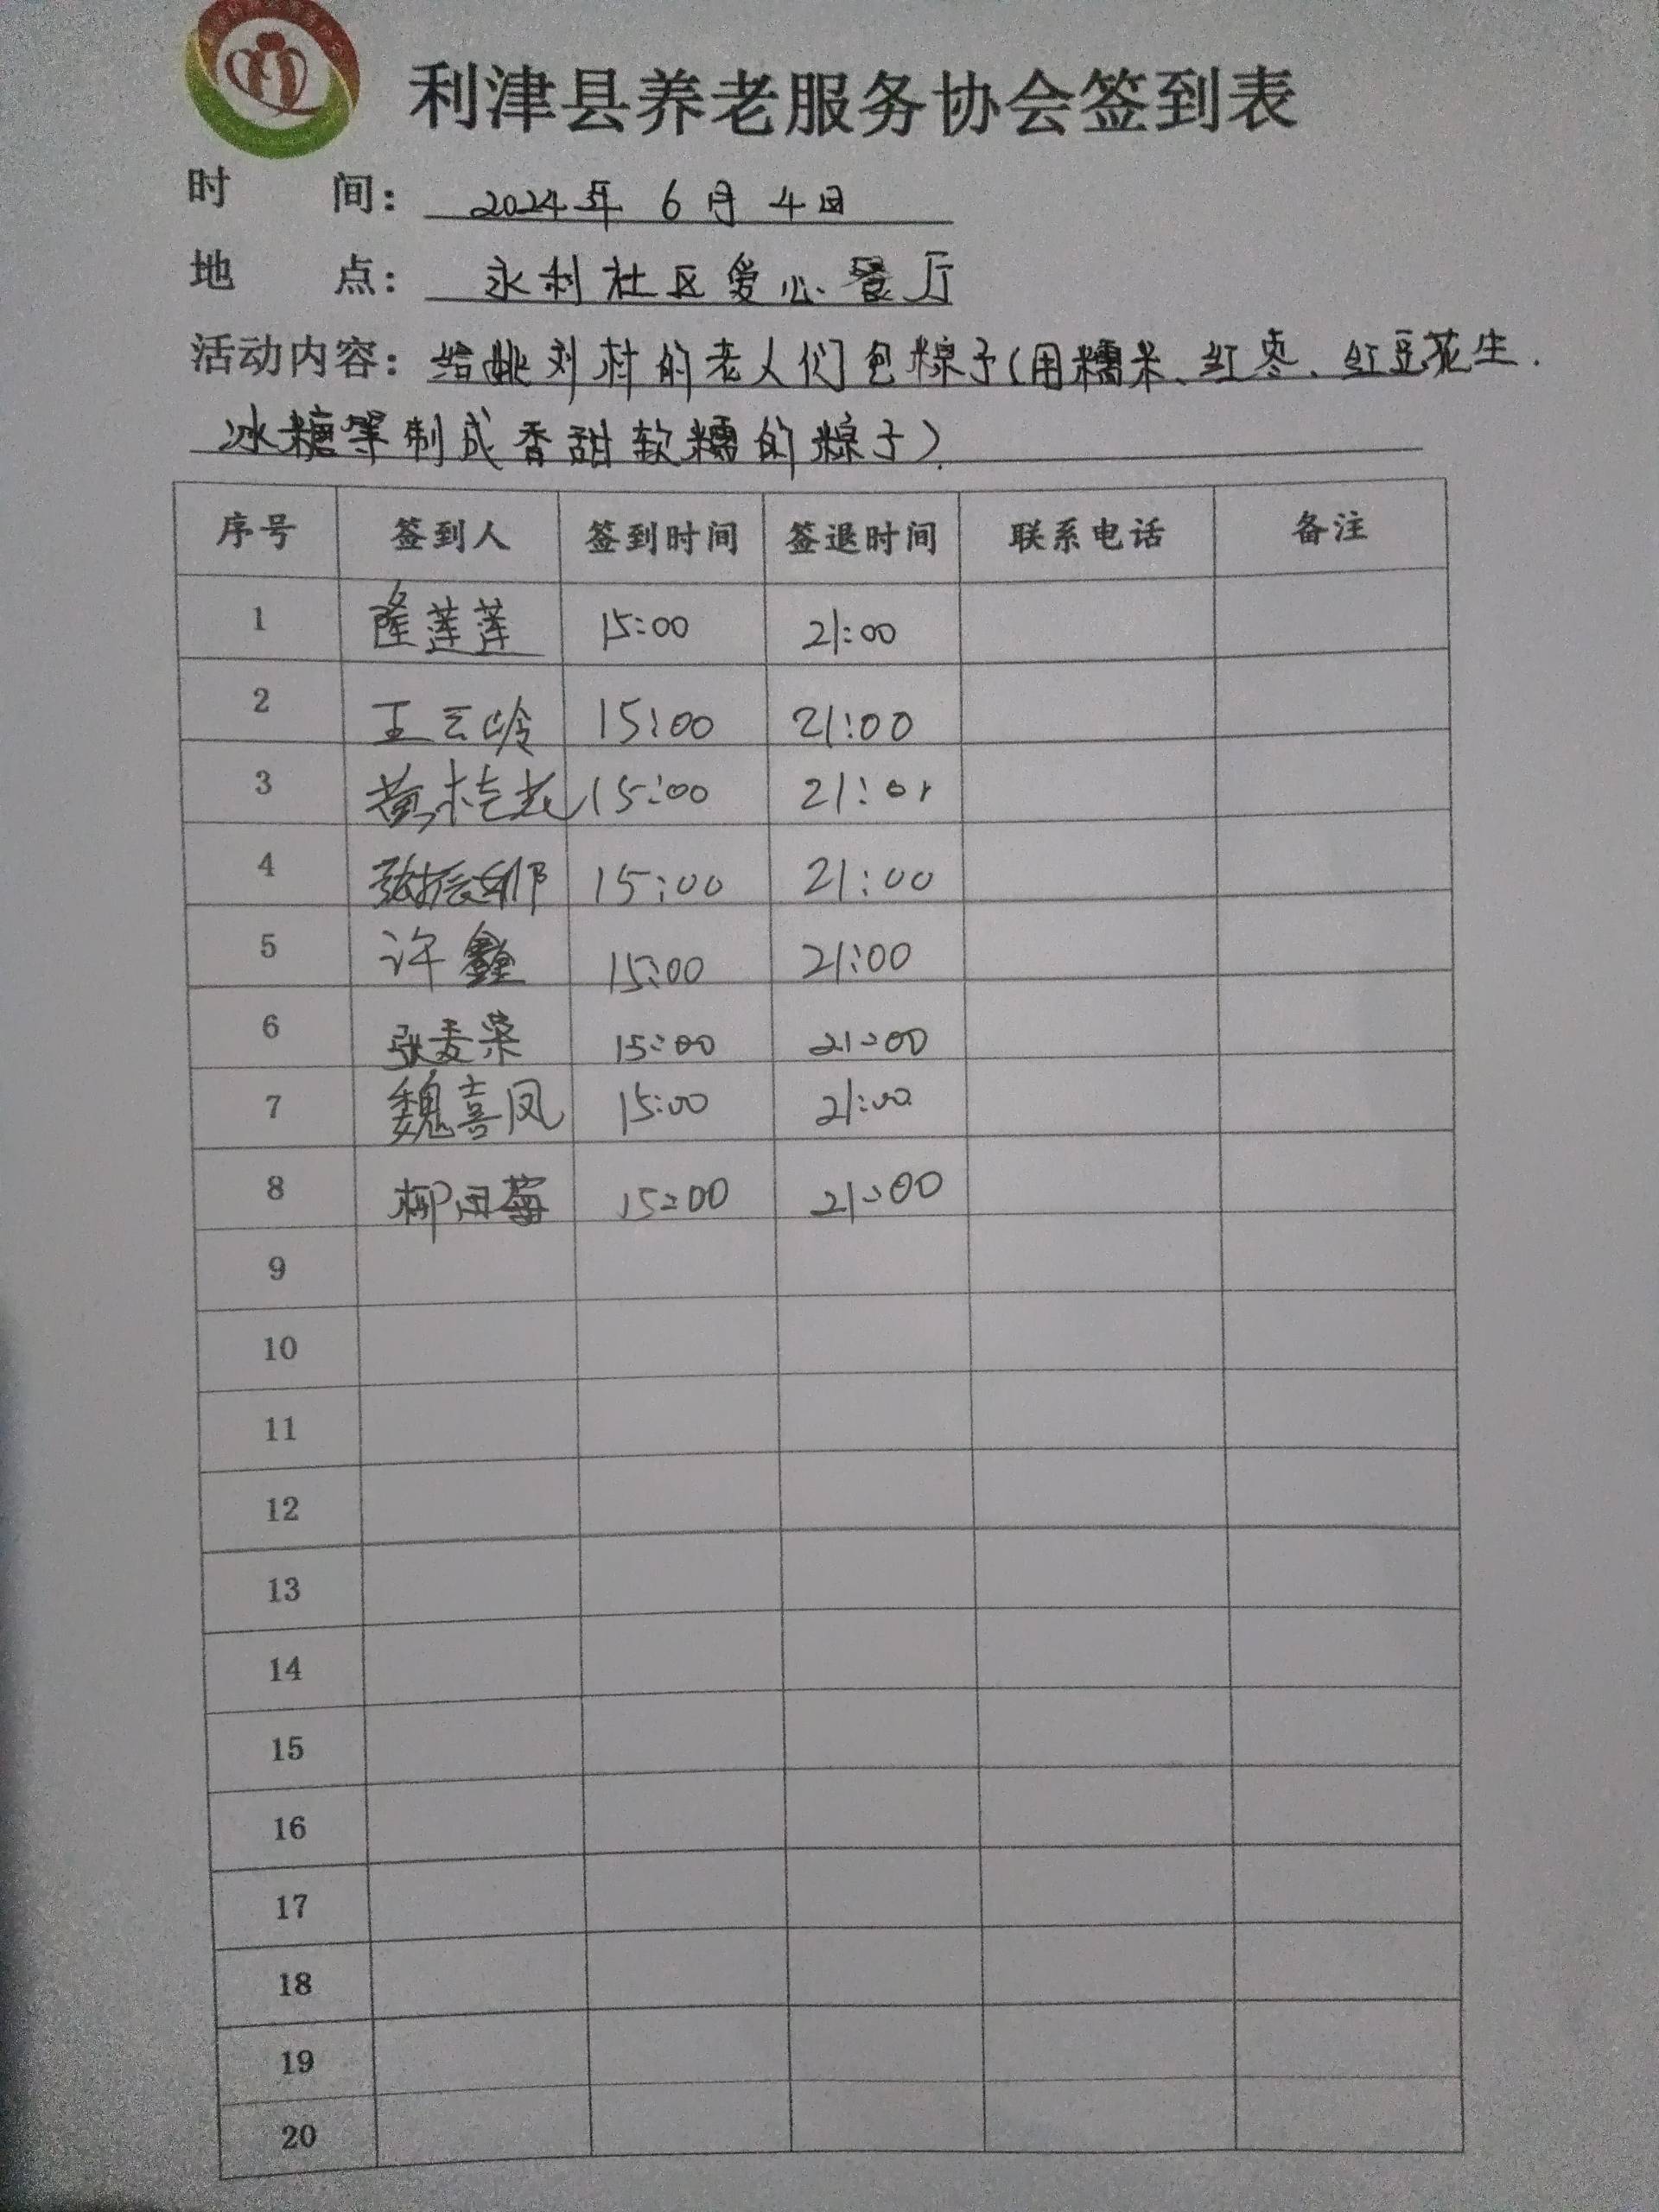 利津县养老服务协会签到表
时 间： 2024年 6月 4日
地 点： 永利社区爱心餐厅
活动内容：给姚刘村的老人们包粽子(用糯米、红枣、红豆花生.
冰糖等制成香甜软糯的粽子).
序号 签到人 签到时间 签退时间 联系电话 备注
1 隆莲莲 15:00 21:00
2 王云岭 15:00 21:00
3 黄桂花 15:00 21:01
4 张振 15:00 21:00
5 许鑫 15:00 21:00
6 张麦荣 15:00 21:00
7 魏喜凤 15:00 21:00
8 柳田莓 15:00 21:00
9
10
11
12
13
14
15
16
17
18
19
20